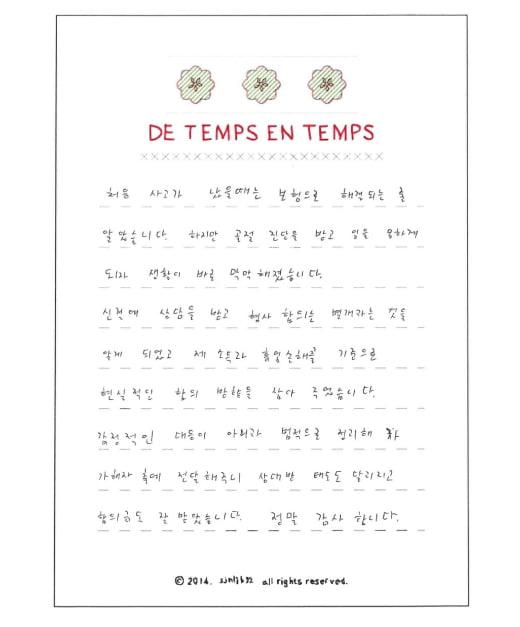 DE TEMPS EN TEMPS
처음 사고가 났을때는 보험으로 해결되는 줄
알았습니다. 하지만 골절 진단을 받고 일을 못하게
되자 생활이 바로 막막해졌습니다.
신전에 상담을 받고 형사 합의는 별개라는 것을
알게 되었고 제 소득과 휴업손해를 기준으로
현실적인 합의 방향을 잡아 주었습니다.
감정적인 대응이 아니라 법적으로 정리해
가해자 측에 전달해주니 상대방 태도도 달라지고
합의금도 잘 받았습니다. 정말 감사 합니다.
© 2014. all rights reserved.